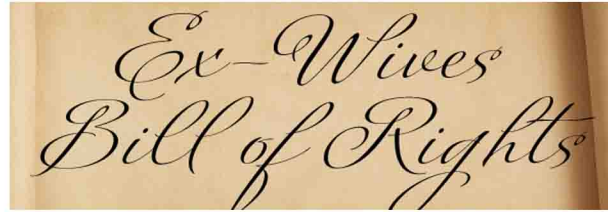 Ex-Wives
Bill of Rights